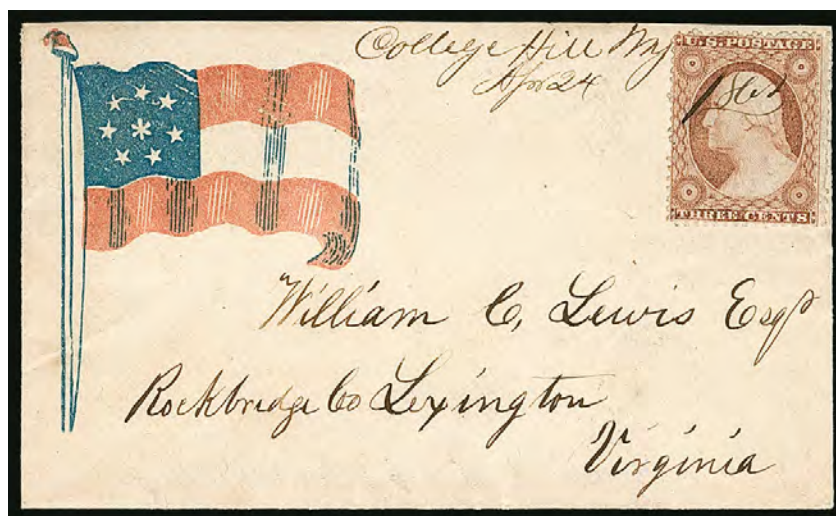 College Hill Ky
Apr 24
U.S. POSTAGE
1861
THREE CENTS
William C. Lewis Esqr
Rockbridge Co Lexington
Virginia